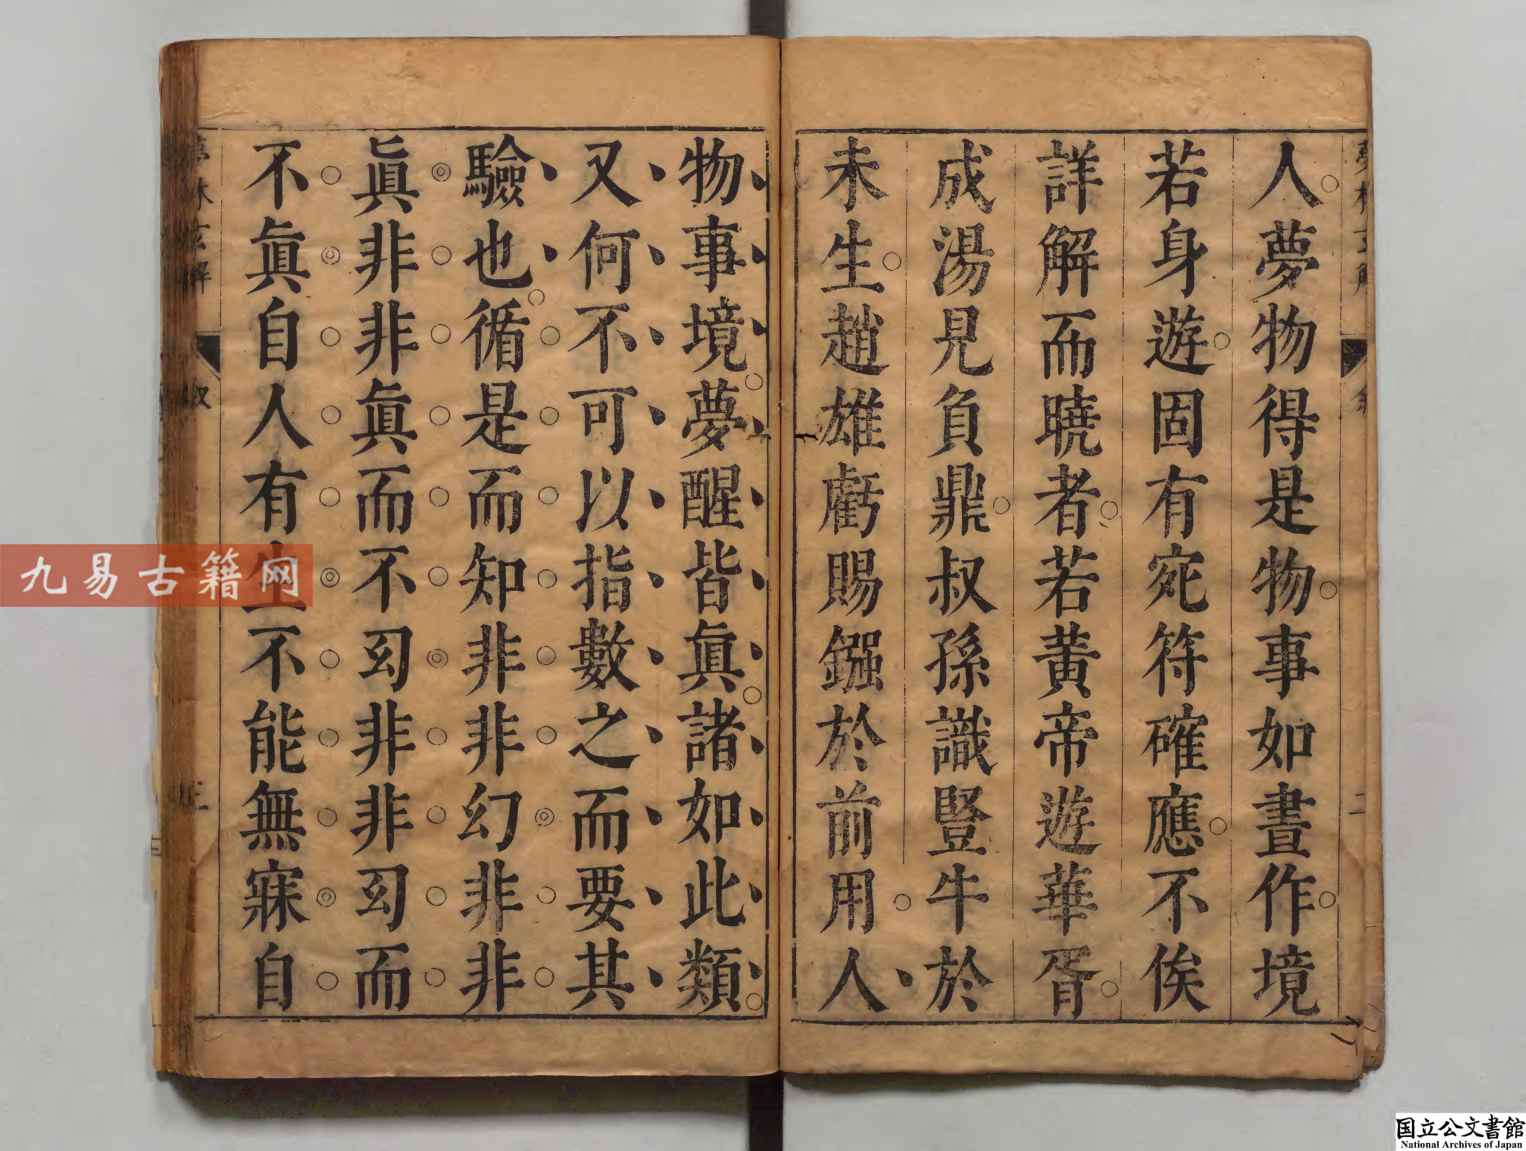 人夢物得是物事如晝作境
若身遊固有宛符確應不俟
詳解而曉者若黃帝遊華胥
成湯見負鼎叔孫識豎牛於
未生趙雄虧賜鏹於前用人
物事境夢醒皆眞諸如此類
又何不可以指數之而要其
驗也循是而知非非幻非非
眞非非眞而不幻非非幻而
不眞自人有生不能無寐自
九易古籍网
国立公文書館
National Archives of Japan